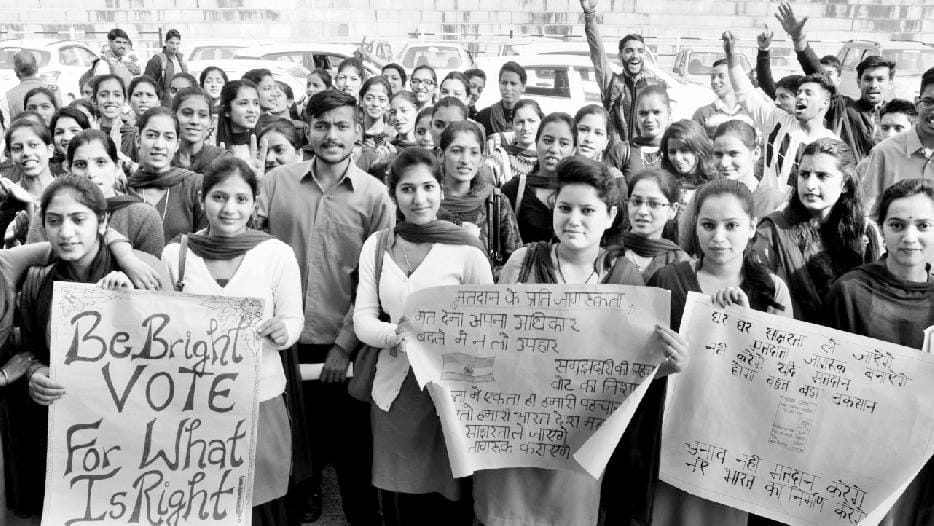 Be Bright
VOTE
For What
Is Right
मतदान के प्रति जागरूकता
मत देना अपना अधिकार
बदले में न लो उपहार
समझदारी की पहचान
वोट का निशान
में एकता ही हमारी पहचान
हमारा भारत देश
साक्षरता ले जाएंगे
जागरूक कराएंगे
घर घर साक्षरता ले जायेंगे
मतदाता जागरूक बनायेंगे
नहीं करोगे यदि मतदान
होगा बहुत बड़ा नुकसान
चुनाव नहीं मतदान करेंगे
नए भारत का निर्माण करेंगे